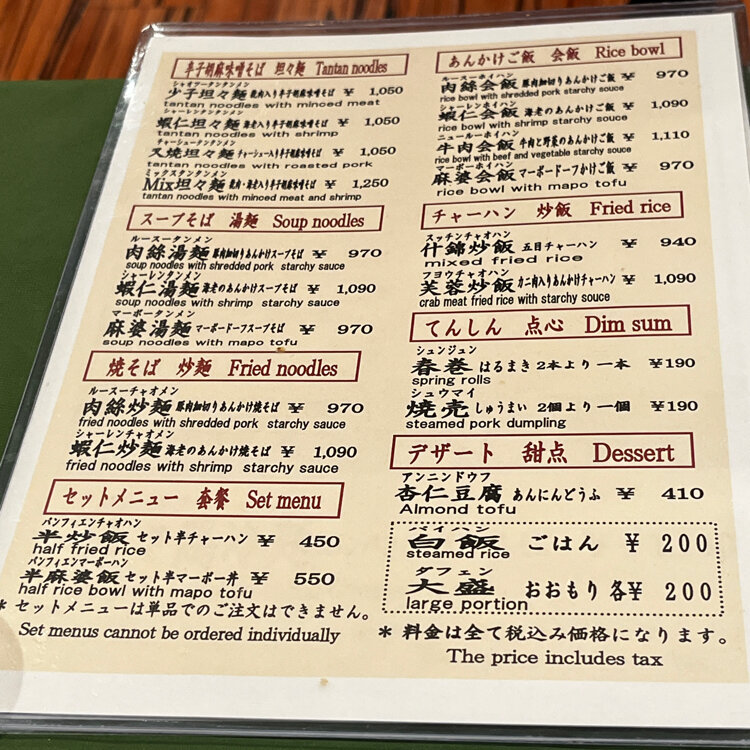 辛子胡麻味噌そば 坦々麺 Tantan noodles
シャオツータンタンメン
少子坦々麺 挽肉入り辛子胡麻味噌そば ¥ 1,050
tantan noodles with minced meat
シャーレンタンタンメン
蝦仁坦々麺 海老入り辛子胡麻味噌そば ¥ 1,050
tantan noodles with shrimp
チャーシュータンタンメン
叉焼坦々麺 チャーシュー入り辛子胡麻味噌そば ¥ 1,050
tantan noodles with roasted pork
ミックスタンタンメン
Mix坦々麺 挽肉・海老入り辛子胡麻味噌そば ¥ 1,250
tantan noodles with minced meat and shrimp
スープそば 湯麺 Soup noodles
ルースータンメン
肉絲湯麺 豚肉細切りあんかけスープそば ¥ 970
soup noodles with shredded pork starchy sauce
シャーレンタンメン
蝦仁湯麺 海老のあんかけスープそば ¥ 1,090
soup noodles with shrimp starchy sauce
マーボータンメン
麻婆湯麺 マーボードーフスープそば ¥ 970
soup noodles with mapo tofu
焼そば 炒麺 Fried noodles
ルースーチャオメン
肉絲炒麺 豚肉細切りあんかけ焼そば ¥ 970
fried noodles with shredded pork starchy sauce
シャーレンチャオメン
蝦仁炒麺 海老のあんかけ焼そば ¥ 1,090
fried noodles with shrimp starchy sauce
セットメニュー 套餐 Set menu
パンフィエンチャオハン
半炒飯 セット半チャーハン ¥ 450
half fried rice
パンフィエンマーボーハン
半麻婆飯 セット半マーボー丼 ¥ 550
half rice bowl with mapo tofu
* セットメニューは単品でのご注文はできません。
Set menus cannot be ordered individually
あんかけご飯 会飯 Rice bowl
ルースーホイハン
肉絲会飯 豚肉細切りあんかけご飯 ¥ 970
rice bowl with shredded pork starchy sauce
シャーレンホイハン
蝦仁会飯 海老のあんかけご飯 ¥ 1,090
rice bowl with shrimp starchy sauce
ニュールーホイハン
牛肉会飯 牛肉と野菜のあんかけご飯 ¥ 1,110
rice bowl with beef and vegetable starchy sauce
マーボーホイハン
麻婆会飯 マーボードーフかけご飯 ¥ 970
rice bowl with mapo tofu
チャーハン 炒飯 Fried rice
スッチンチャオハン
什錦炒飯 五目チャーハン ¥ 940
mixed fried rice
フヨウチャオハン
芙蓉炒飯 カニ肉入りあんかけチャーハン ¥ 1,090
crab meat fried rice with starchy souce
てんしん 点心 Dim sum
シュンジュン
春巻 はるまき 2本より 一本 ¥190
spring rolls
シュウマイ
焼売 しゅうまい 2個より 一個 ¥190
steamed pork dumpling
デザート 甜点 Dessert
アンニンドウフ
杏仁豆腐 あんにんどうふ ¥ 410
Almond tofu
バイハン
白飯 ごはん ¥ 200
steamed rice
ダフェン
大盛 おおもり 各¥ 200
large portion
* 料金は全て税込み価格になります。
The price includes tax